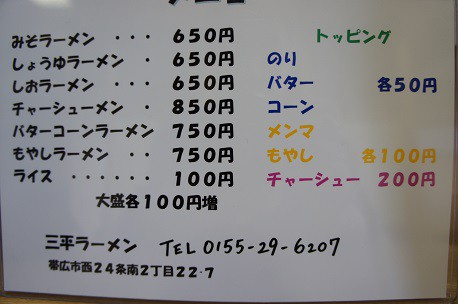 みそラーメン ・・・ 650円
しょうゆラーメン ・ 650円
しおラーメン ・・・ 650円
チャーシューメン ・ 850円
バターコーンラーメン 750円
もやしラーメン ・・ 750円
ライス ・・・・・・ 100円
大盛各100円増
トッピング
のり
バター 各50円
コーン
メンマ
もやし 各100円
チャーシュー 200円
三平ラーメン TEL 0155-29-6207
帯広市西24条南2丁目22-7